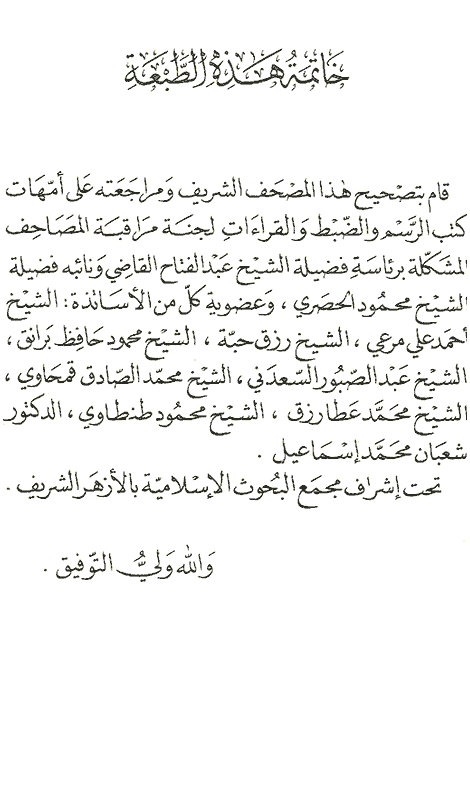 خَاتِمَةُ هَذِهِ الطَّبْعَةِ
قام بتصْحيح هٰذا المصْحَف الشريف وَمراجَعَته عَلى أمّهَات
كتب الرَّسْم والضّبْط وَالقراءَاتِ لجنَة مرَاقبَة المصَاحِف
المشكّلَة برئاسَةِ فضيلَة الشيْخ عَبْد الفتاح القَاضِي وَنائبه فضيلة
الشيْخ محمُود الحصَري ، وَعضوية كلّ من الأسَاتذة : الشيْخ
أحمد علي مرعي ، الشيْخ رزق حبّة ، الشيْخ محمود حَافِظ برَانق ،
الشيْخ عَبْد الصّبُور السّعدَني ، الشيْخ محمّد الصَّادق قمحَاوي ،
الشيْخ محمَّد عَطا رزق ، الشيْخ محمُود طنطاوي ، الدكتور
شعبَان محمَّد إسْمَاعيل .
تحت إشرَاف مجمَع البُحوث الإسْلاميّة بالأزهَر الشريف .
وَاللّه وَليُّ التوّفيق .